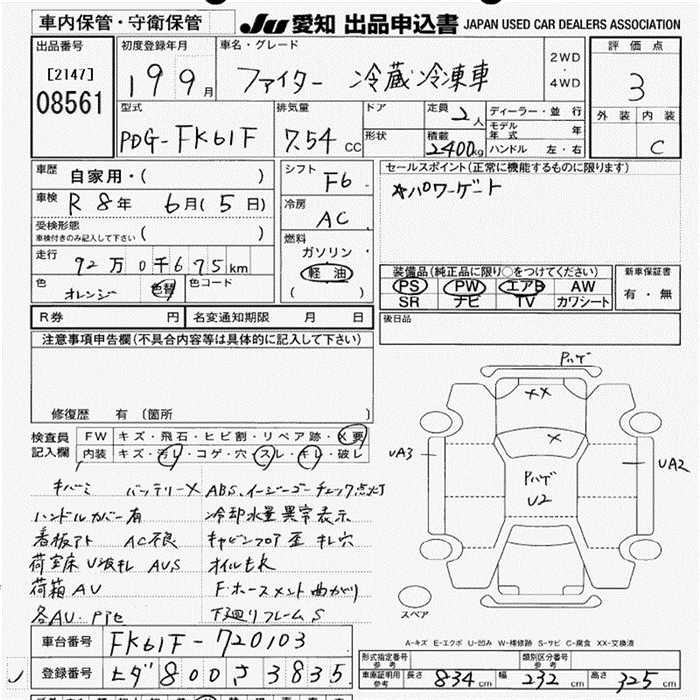 車内保管・守衛保管
JU 愛知 出品申込書 JAPAN USED CAR DEALERS ASSOCIATION
出品番号
[2147]
08561
初度登録年月
19 9月
車名・グレード
ファイター 冷蔵冷凍車
2WD
・
4WD
評価点
3
外装 内装
C
型式
PDG-FK61F
排気量
7.54 CC
ドア
形状
定員 2人
積載 2400kg
ディーラー・並行
モデル年式 年
ハンドル 左・右
車歴
自家用・( )
車検
R 8年 6月(5日)
受検形態
車検付きのみ記入して下さい ( )
走行
92万0千675km
色
オレンジ 色替
色コード
シフト
F6
冷房
AC
燃料
ガソリン
軽油
( )
セールスポイント(正常に機能するものに限ります)
パワーゲート
装備品(純正品に限り○をつけてください)
PS PW エアB AW
SR ナビ TV カワシート
新車保証書
有・無
R券 円 名変通知期限 月 日
後日品
注意事項申告欄(不具合内容等は具体的に記入して下さい)
修復歴 有 (箇所 )
検査員記入欄
FW キズ・飛石・ヒビ割・リペア跡・X要
内装 キズ・汚レ・コゲ・穴・スレ・キレ・破レ
キバミ バッテリーX ABS、イージーゴーチェック点灯
ハンドルカバー有 冷却水量異常表示
看板アト AC不良 キャビンフロア歪 キレ穴
荷室床U波キレ AUS オイルもれ
荷箱AU F.ホースメント曲がり
各AU・P下セ 下廻りフレームS
Pハゲ
XX
X
UA3
UA2
Pハゲ
U2
スペア
A-キズ E-エクボ U-凹み W-補修跡 S-サビ C-腐食 XX-交換済
車台番号 FK61F-720103
登録番号 ヒダ 800 さ 3835
形式指定番号
参考
類別区分番号
参考
車庫証明用
参考
長さ 834 cm 幅 232 cm 高さ 325 cm